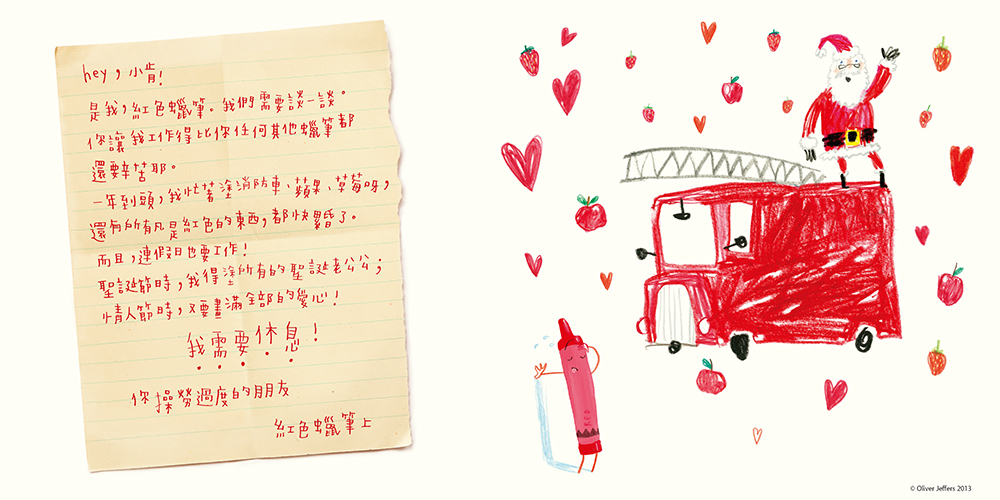 hey，小肯！
是我，紅色蠟筆。我們需要談一談。
你讓我工作得比你任何其他蠟筆都
還要辛苦耶。
一年到頭，我忙著塗消防車、蘋果、草莓呀，
還有所有凡是紅色的東西，都快昏了。
而且，連假日也要工作！
聖誕節時，我得塗所有的聖誕老公公；
情人節時，又要畫滿全部的愛心！
我需要休息！
你操勞過度的朋友
紅色蠟筆上
RED
© Oliver Jeffers 2013